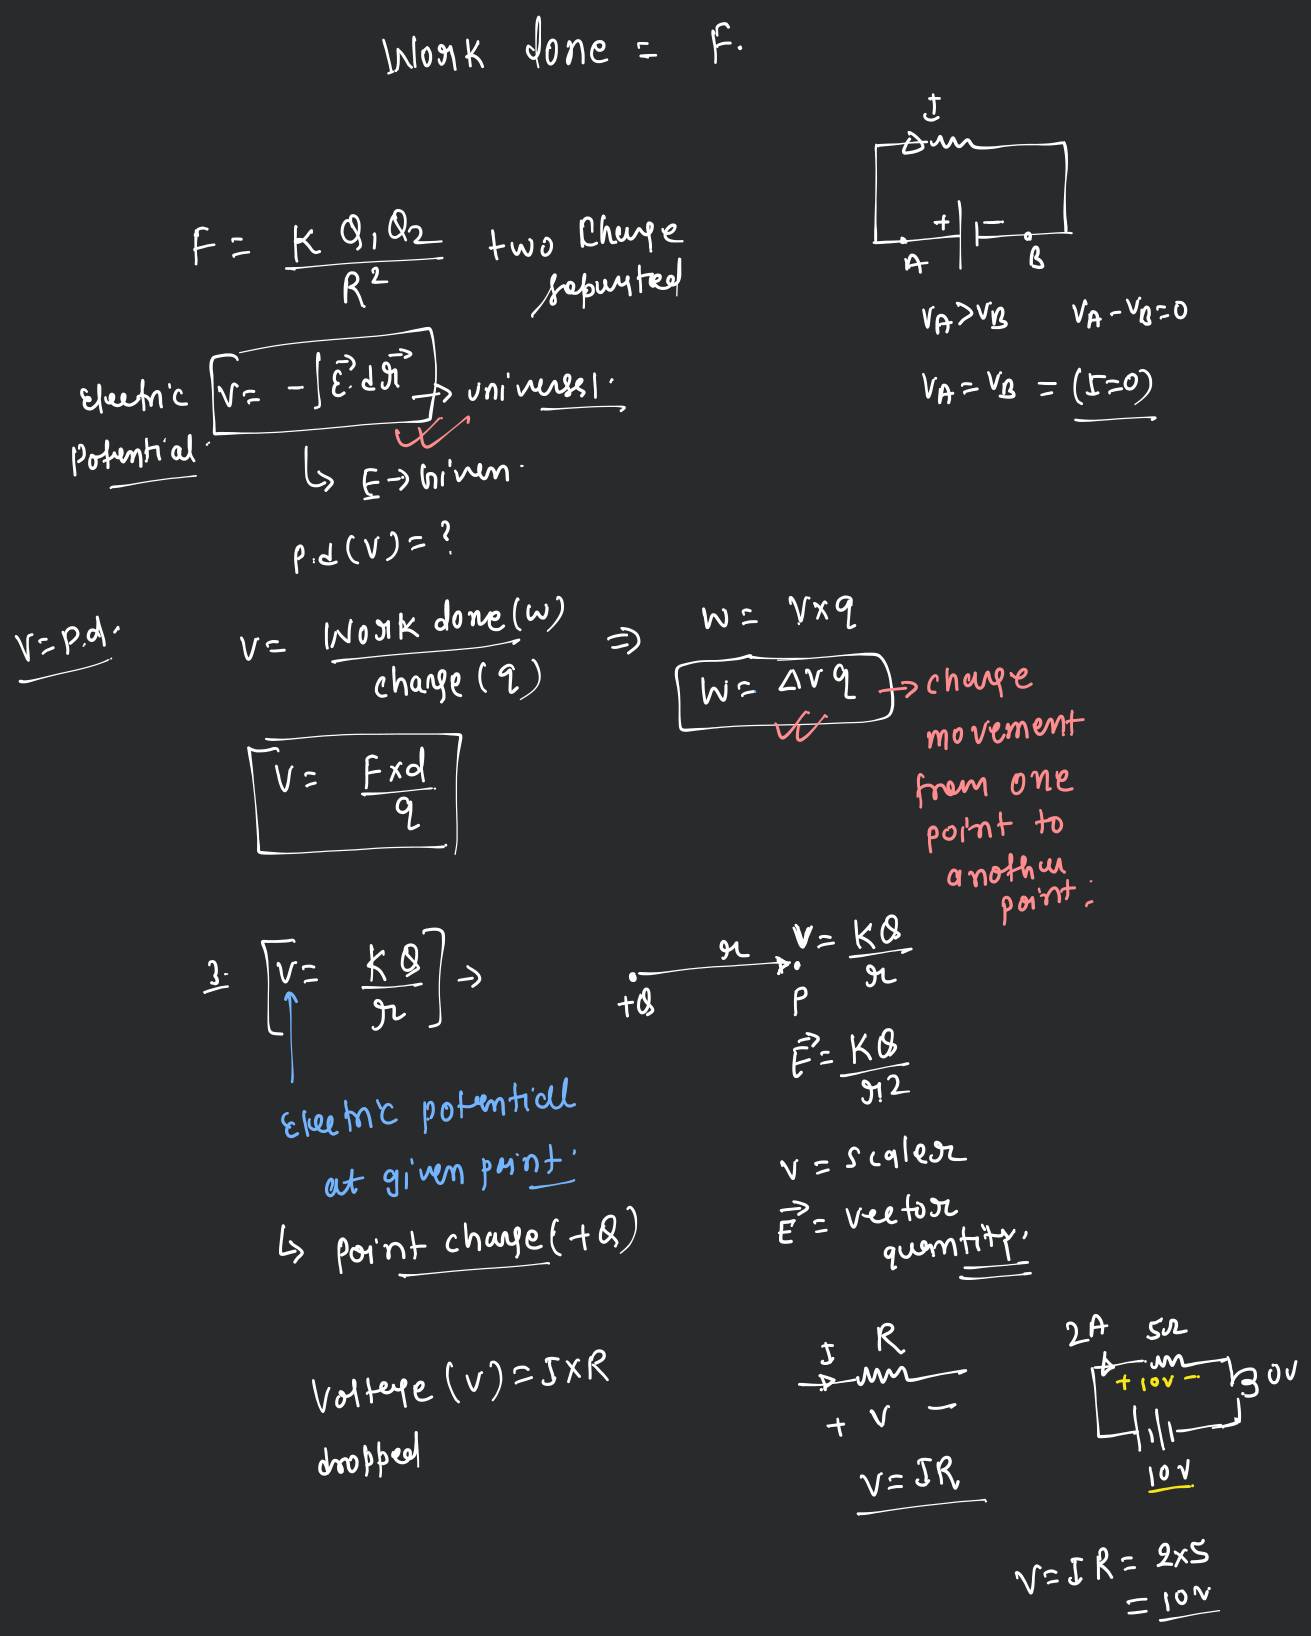 Work done = F.
I
+ -
A B
F = K Q1 Q2 / R² two Charge
separated
VA > VB VA - VB = 0
VA = VB = (I=0)
Electric V = -∫E⃗.dr⃗ → universal.
Potential.
↳ E → Given.
P.d (V) = ?
V = P.d. V = Work done (w) / charge (q) ⇒ W = V×q
W = ΔV q → charge
movement
from one
point to
another
point.
V = F×d / q
3. [V = KQ / r] →
+Q r P V = KQ / r
E⃗ = KQ / r²
Electric potential
at given point.
↳ Point charge (+Q)
V = scaler
E⃗ = vector
quantity.
Voltage (V) = I×R
dropped
I R
+ V -
V = IR
2A 5Ω
+ 10V -
0V
10V
V = IR = 2×5
= 10V